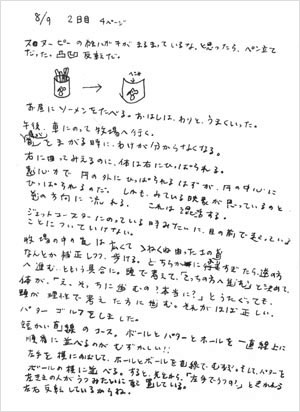 8/9 2日目 4ページ
スヌーピーの
だった。凸凹反転だ。
お昼にソーメンをたべる。おはしは、わりと、うまくいった。
午後、車にのって牧場へ行く。
道をまがる時に、わけが分からなくなる。
右に曲ってみえるのに、体は右にひっぱられる。
遠心力で円の外にひっぱられるはずが、円の中心に
ひっぱられるのだ。しかも、みている映象が思っているのと
逆の方向に流れる。これは混乱する。
ジェットコースターにのっている時みたいに、目の前で起っている
ことについていけない。
牧場の中の道は広くてうねうね曲った土の道
なんとか補正しつつ、歩ける。どちらかに
へ進む、という具合に。頭で考えて、「こっちの方へ進む」と決めて、
体が、「え、そっちに進むの？本当に？」とうたがっても、
頭が理性で考えた方に進む。それがほぼ正しい。
パターゴルフをしました。
短かい直線のコース。ボールとパターとホールを一直線上に
順番に並べるのがむずかしい!!
左手を横にのばして、ホールとボールを直線でむすび、そして、パターを
ボールの横に並べる。すると、見と
左ききの人がうつみたいに
左右反転しているからね。